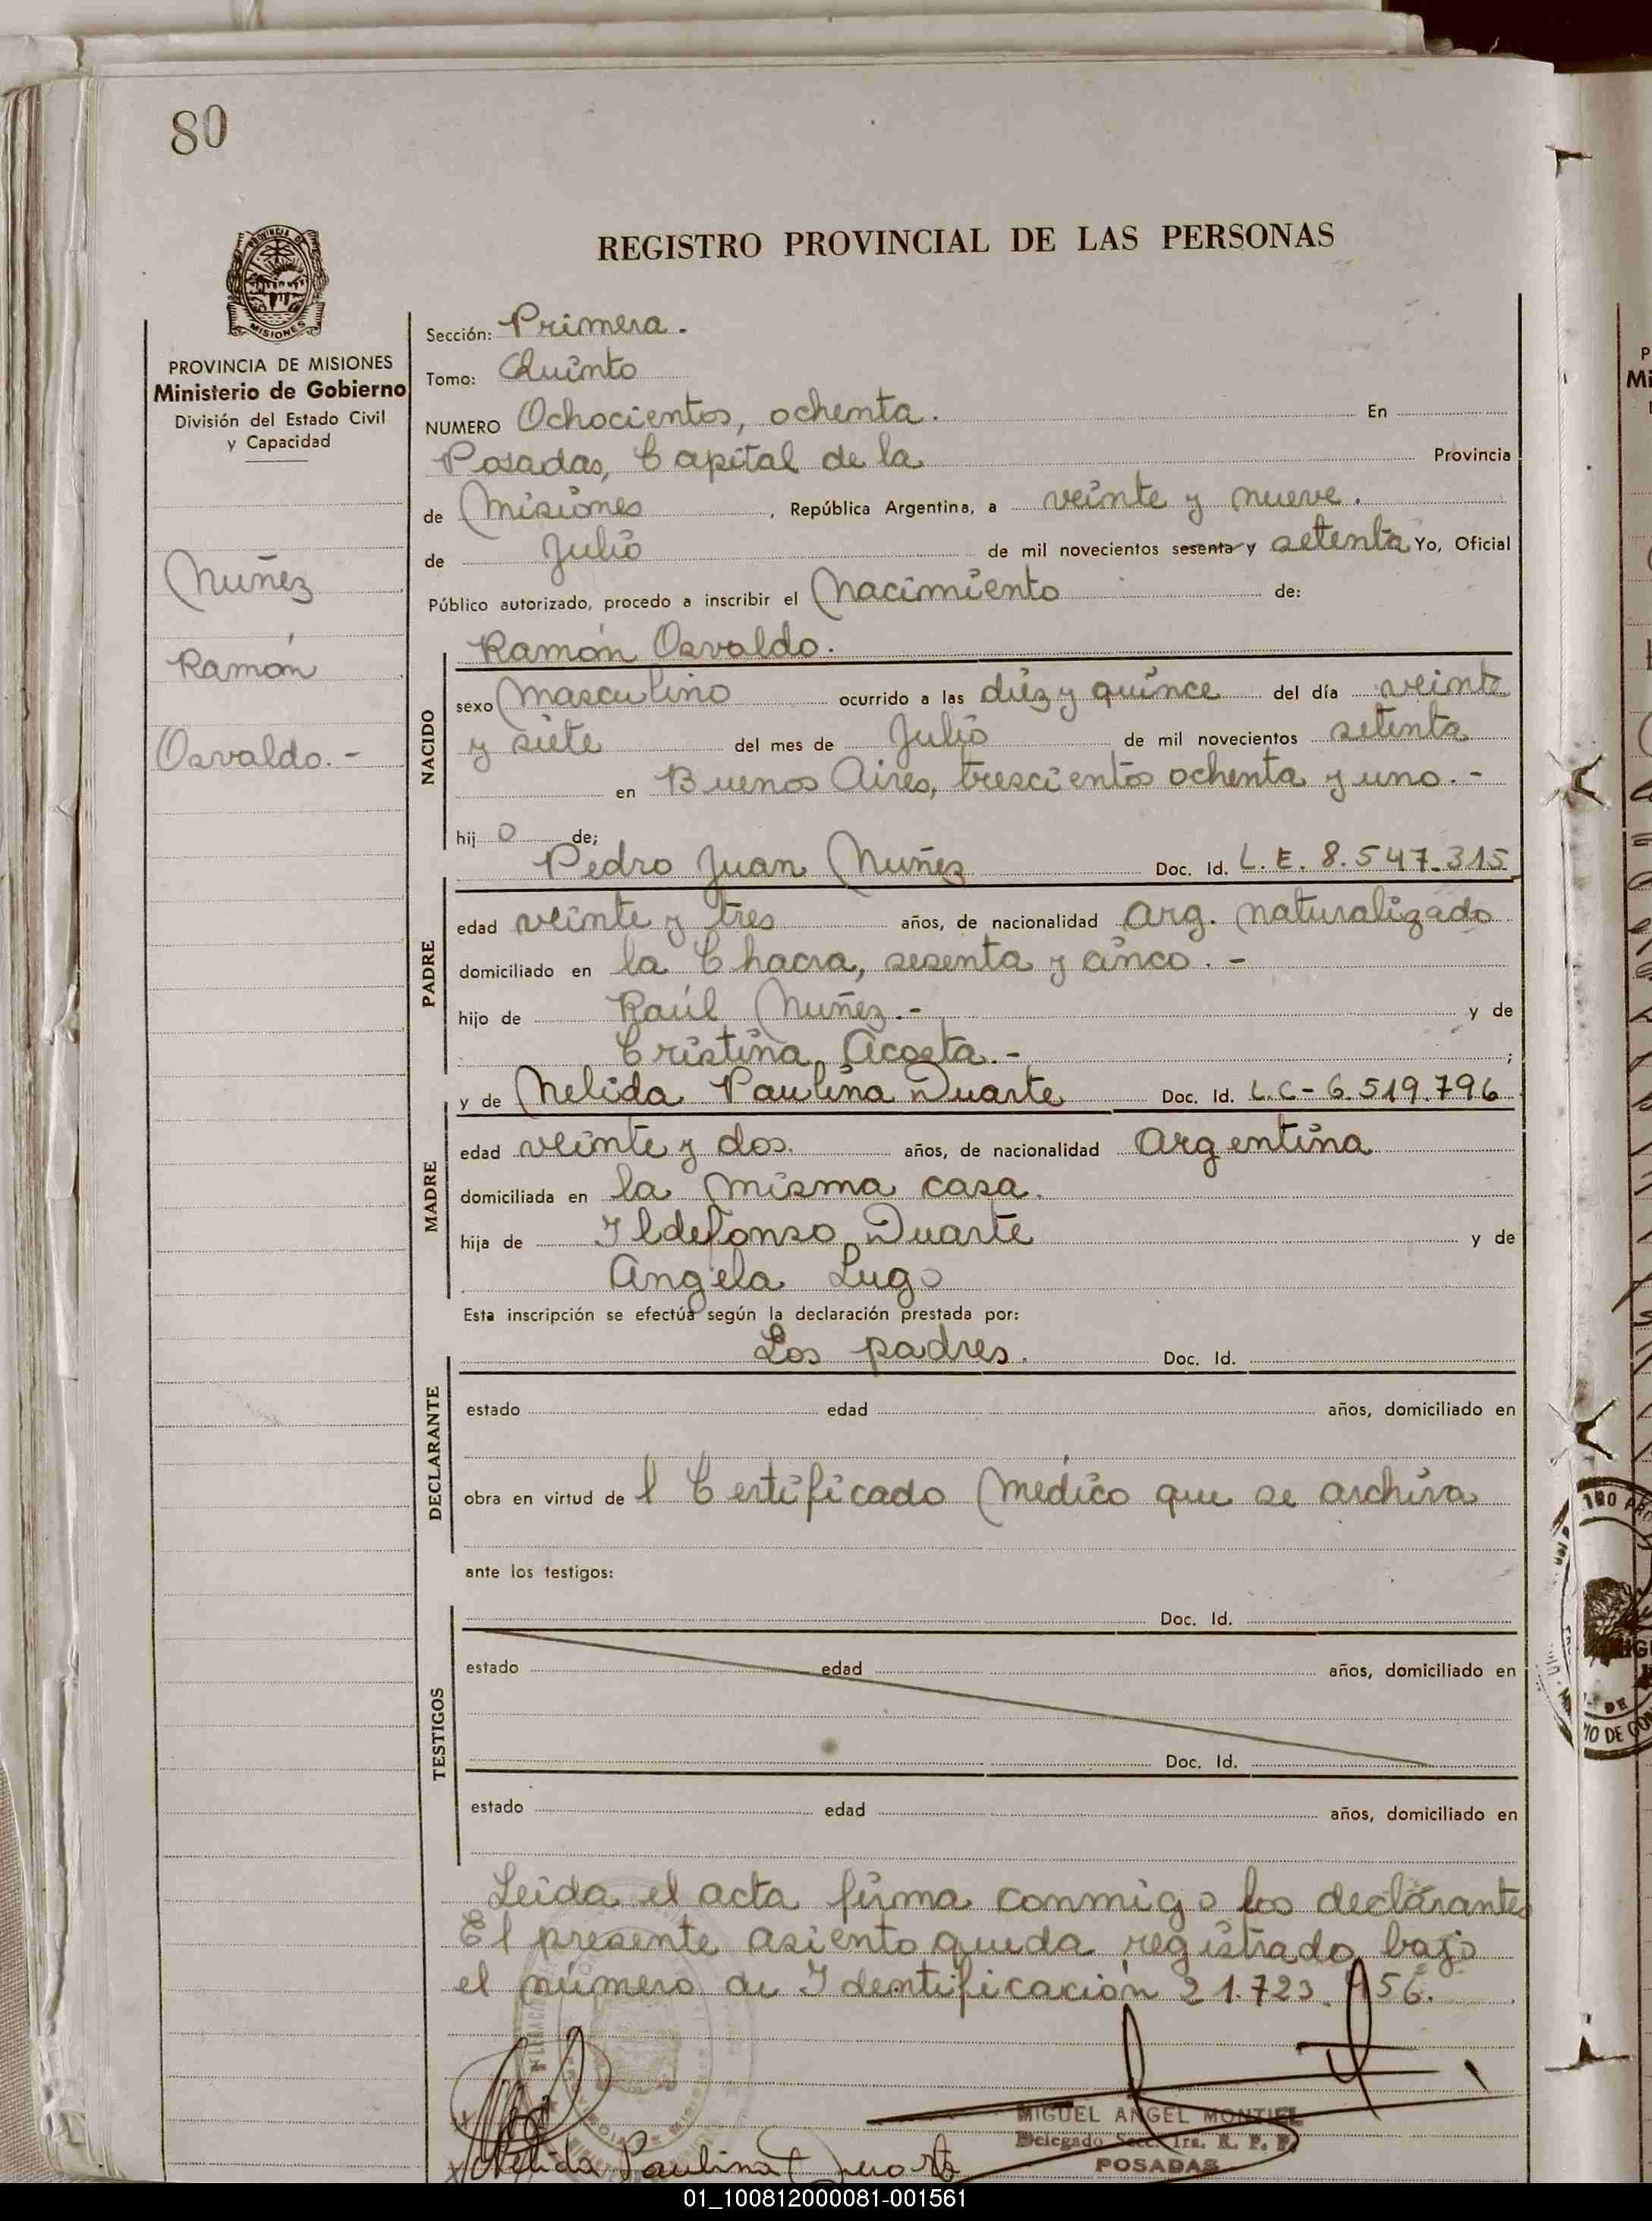 80
REGISTRO PROVINCIAL DE LAS PERSONAS
PROVINCIA DE MISIONES
MISIONES
PROVINCIA DE MISIONES
Ministerio de Gobierno
División del Estado Civil
y Capacidad
Nuñez
Ramón
Osvaldo.-
Sección: Primera.
Tomo: Quinto
NUMERO Ochocientos, ochenta. En
Posadas, Capital de la Provincia
de Misiones, República Argentina, a veinte y nueve.
de Julio de mil novecientos sesenta y setenta Yo, Oficial
Público autorizado, procedo a inscribir el Nacimiento de:
Ramón Osvaldo.
NACIDO
sexo Masculino ocurrido a las diéz y quince del día veinte
y siete del mes de Julio de mil novecientos setenta
en Buenos Aires, trescientos ochenta y uno.-
hij o de;
Pedro Juan Nuñez Doc. Id. L.E. 8.547.315
PADRE
edad veinte y tres años, de nacionalidad Arg. naturalizado
domiciliado en la Chacra, sesenta y cinco.-
hijo de Raúl Nuñez.- y de
Cristina Acosta.- ;
y de Nelida Paulina Duarte Doc. Id. L.C-6.519.796
MADRE
edad veinte y dos. años, de nacionalidad Argentina
domiciliada en la misma casa.
hija de Ildefonso Duarte y de
Angela Lugo
Esta inscripción se efectúa según la declaración prestada por:
Los padres. Doc. Id.
DECLARANTE
estado edad años, domiciliado en
obra en virtud de l Certificado Médico que se archiva
ante los testigos:
Doc. Id.
TESTIGOS
estado edad años, domiciliado en
Doc. Id.
estado edad años, domiciliado en
Leida el acta firma conmigo los declarantes
El presente asiento queda registrado bajo
el número de Identificación 21.723.956.
MIGUEL ANGEL MONTIEL
Delegado Secc. 1ra. R. P. P.
POSADAS
Nélida Paulina Duarte
01_100812000081-001561